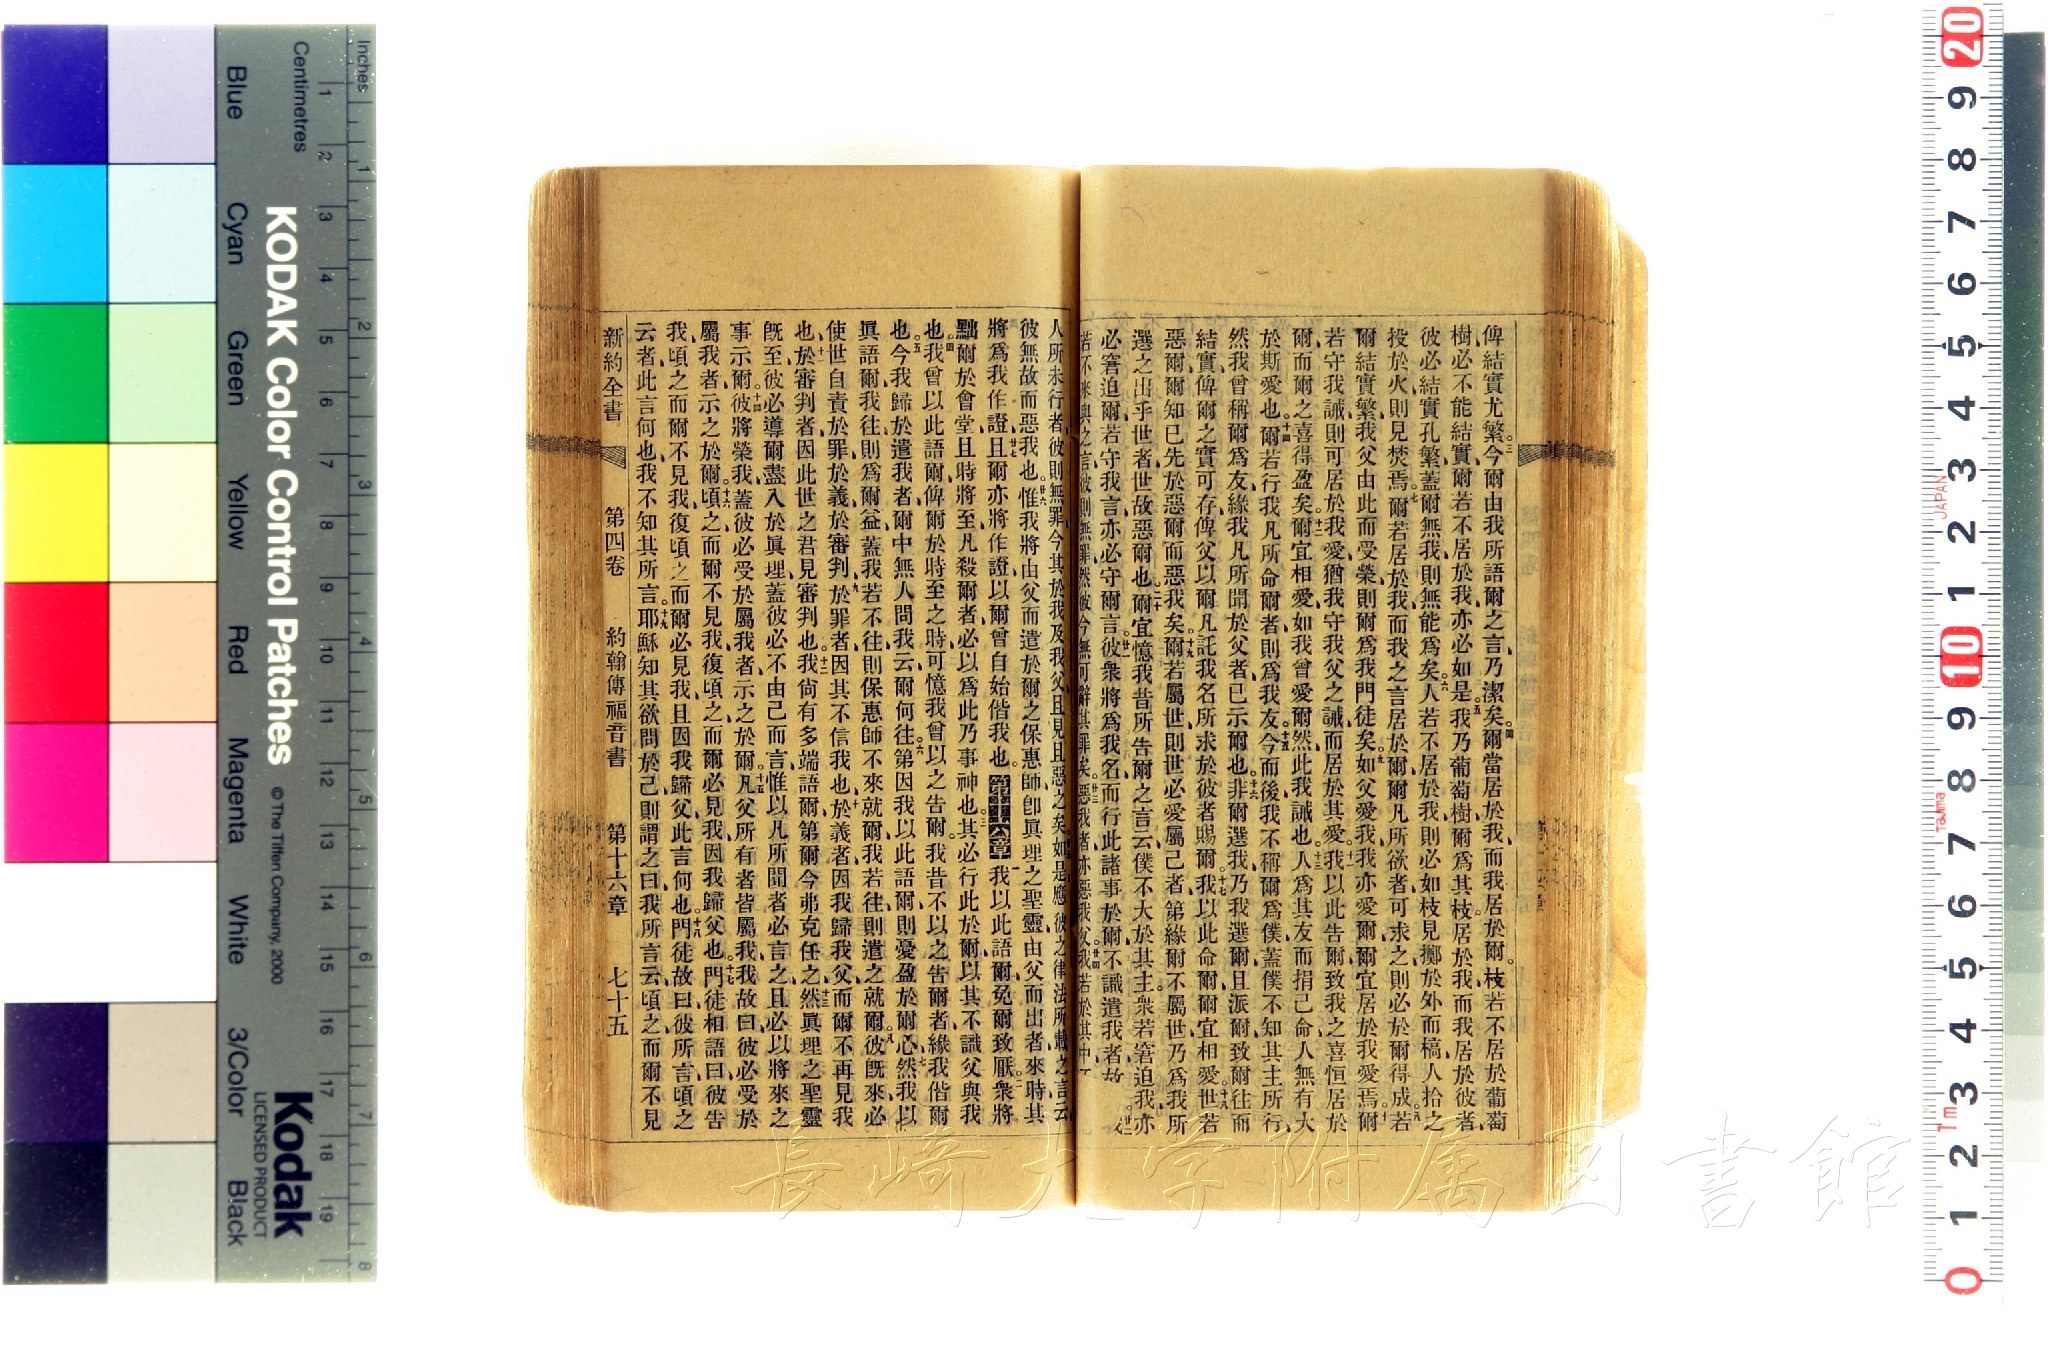 俾結實尤繁。三今爾由我所語爾之言、乃潔矣。四爾當居於我、而我居於爾。枝若不居於葡萄
樹、必不能結實、爾若不居於我、亦必如是。五我乃葡萄樹、爾爲其枝。居於我而我居於彼者、
彼必結實孔繁、蓋爾無我、則無能爲矣。六人若不居於我、則必如枝見擲於外而槁、人拾之
投於火、則見焚焉。七爾若居於我、而我之言居於爾、爾凡所欲者、可求之、則必於爾得成。八若
爾結實繁、我父由此而受榮、則爾爲我門徒矣。九如父愛我、我亦愛爾、爾宜居於我愛焉。十爾
若守我誡、則可居於我愛、猶我守我父之誡、而居於其愛。十一我以此告爾、致我之喜恒居於
爾、而爾之喜得盈矣。十二爾宜相愛、如我曾愛爾、然此我誡也。十三人爲其友而捐己命、人無有大
於斯愛也。十四爾若行我凡所命爾者、則爲我友。十五今而後、我不稱爾爲僕、蓋僕不知其主所行、
然我曾稱爾爲友、緣我凡所聞於父者、已示爾也。十六非爾選我、乃我選爾、且派爾、致爾往而
結實、俾爾之實可存、俾父以爾凡託我名所求於彼者賜爾。十七我以此命爾、爾宜相愛。十八世若
惡爾、爾知已先於惡爾而惡我矣。十九爾若屬世、則世必愛屬己者、第緣爾不屬世、乃爲我所
選之出乎世者、世故惡爾也。二十爾宜憶我昔所告爾之言、云、僕不大於其主。衆若窘迫我、亦
必窘迫爾、若守我言、亦必守爾言。廿一彼衆將爲我名而行此諸事於爾、不識遣我者故
若不來與之言、彼則無罪、然彼今無可辭其罪矣。廿三惡我者、亦惡我父。廿四我若於其中
人所未行者、彼則無罪、今其於我及我父、且見且惡之矣。如是應彼之律法所載之言云
彼無故而惡我也。廿六惟我將由父而遣於爾之保惠師、卽眞理之聖靈、由父而出者、來時、其
將爲我作證。廿七且爾亦將作證、以爾曾自始偕我也。第十六章 一我以此語爾、免爾致厭。二衆將
黜爾於會堂、且時將至、凡殺爾者、必以爲此乃事神也。三其必行此於爾、以其不識父與我
也。四我曾以此語爾、俾爾於時至之時、可憶我曾以之告爾。我昔不以之告爾者、緣我偕爾
也。五今我歸於遣我者、爾中無人問我云、爾何往。六第因我以此語爾、則憂盈於爾心。七然我以
眞語爾、我往則爲爾益、蓋我若不往、則保惠師不來就爾、我若往、則遣之就爾。八彼旣來、必
使世自責於罪、於義、於審判。九於罪者、因其不信我也。十於義者、因我歸我父、而爾不再見我
也。十一於審判者、因此世之君見審判也。十二我尙有多端語爾、第爾今弗克任之。十三然眞理之聖靈
旣至、彼必導爾盡入於眞理、蓋彼必不由己而言、惟以凡所聞者必言之、且必以將來之
事示爾。十四彼將榮我、蓋彼必受於屬我者、示之於爾。十五凡父所有者皆屬我、我故曰、彼必受於
屬我者、示之於爾。十六頃之而爾不見我、復頃之而爾必見我、因我歸父也。十七門徒相語曰、彼告
我、頃之而爾不見我、復頃之而爾必見我、且因我歸父、此言何也。十八門徒故曰、彼所言頃之
云者、此言何也、我不知其所言。十九耶穌知其欲問於己、則謂之曰、我所言云、頃之而爾不見
新約全書 第四卷 約翰傳福音書 第十六章 七十五
長崎大学附属図書館
Inches
Centimetres
KODAK Color Control Patches
© The Tiffen Company, 2000
Kodak
LICENSED PRODUCT
Blue
Cyan
Green
Yellow
Red
Magenta
White
3/Color
Black
JAPAN
Tajima